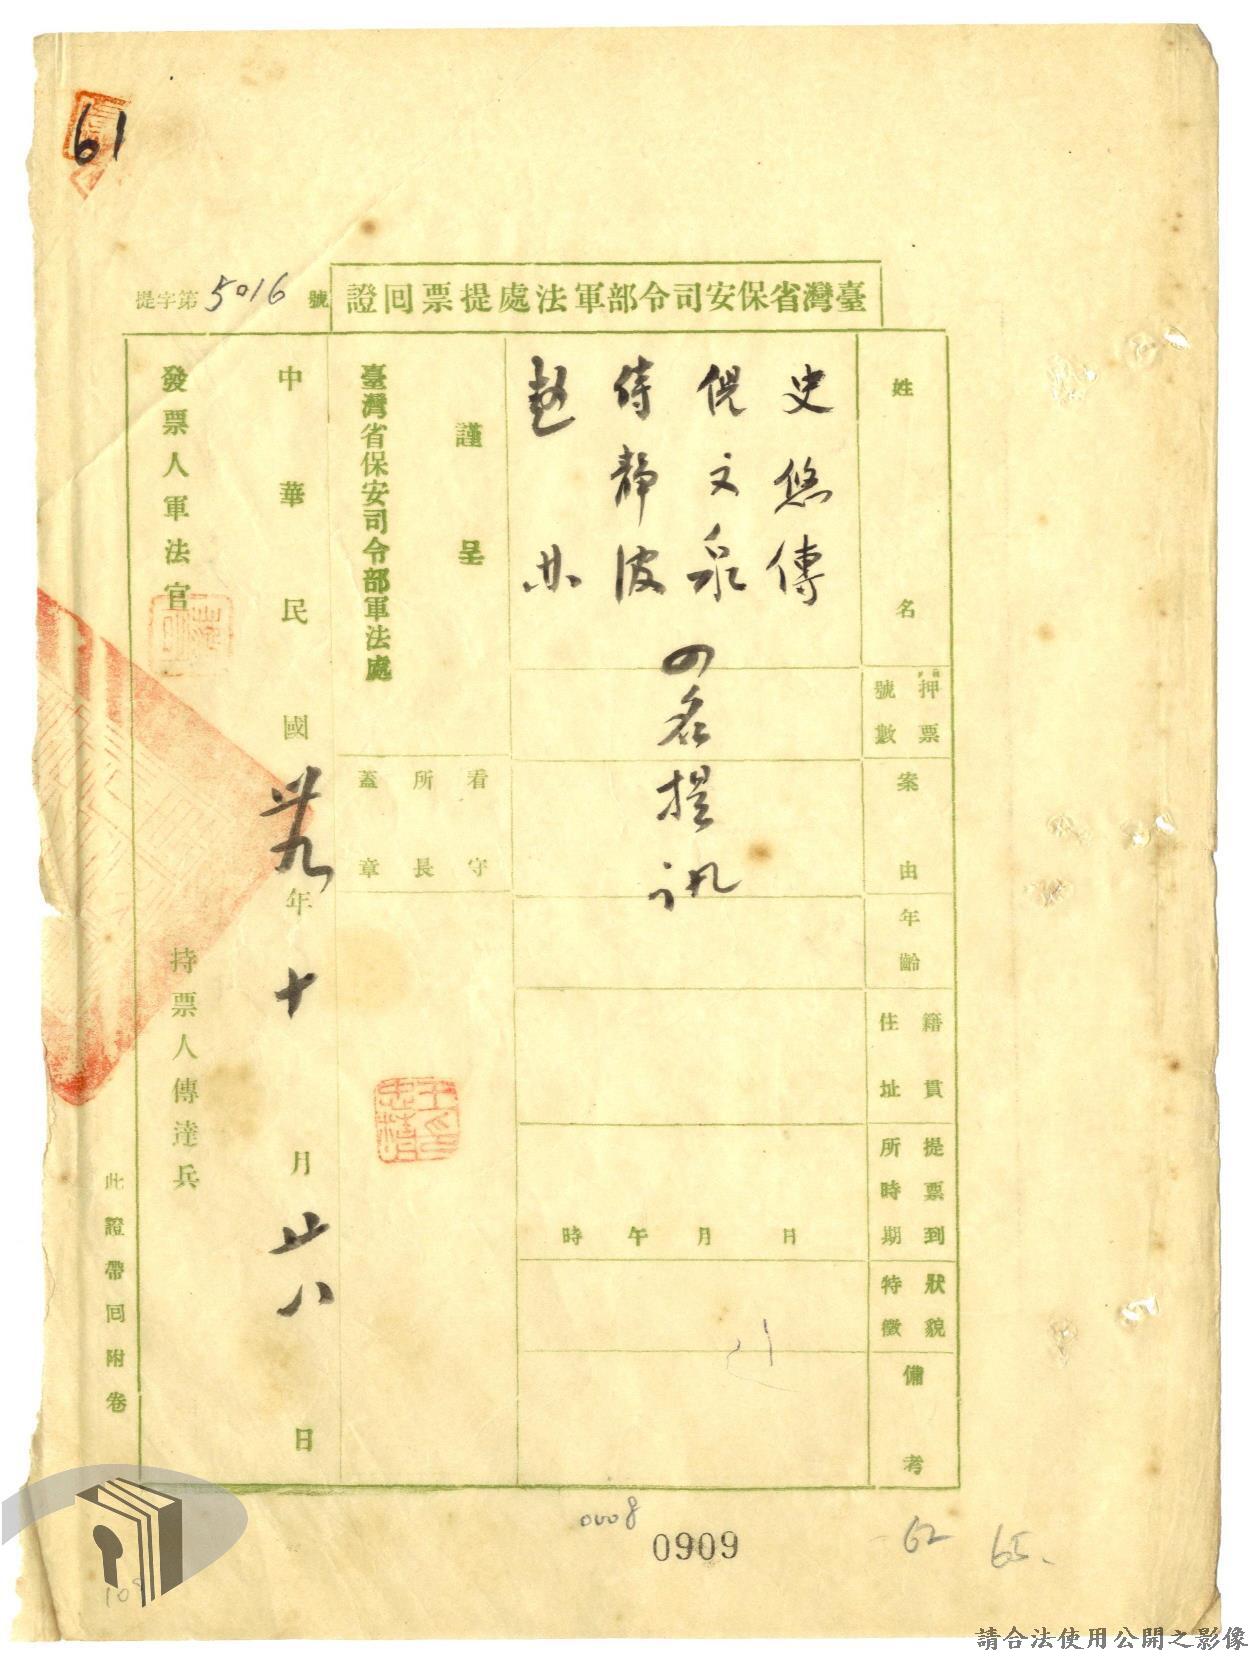 61
臺灣省保安司令部軍法處提票回證
提字第5016號
姓名
押票號數
案由
年齡
籍貫住址
提票到所時期
狀貌特徵
備考
史悠傳
倪文泉
侍靜波
趙
四名提訊
日 月 午 時
謹呈
臺灣省保安司令部軍法處
看守所長蓋章
中華民國卅九年十月廿八日
發票人軍法官
持票人傳達兵
此證帶回附卷
0008
0909
62
65.
請合法使用公開之影像